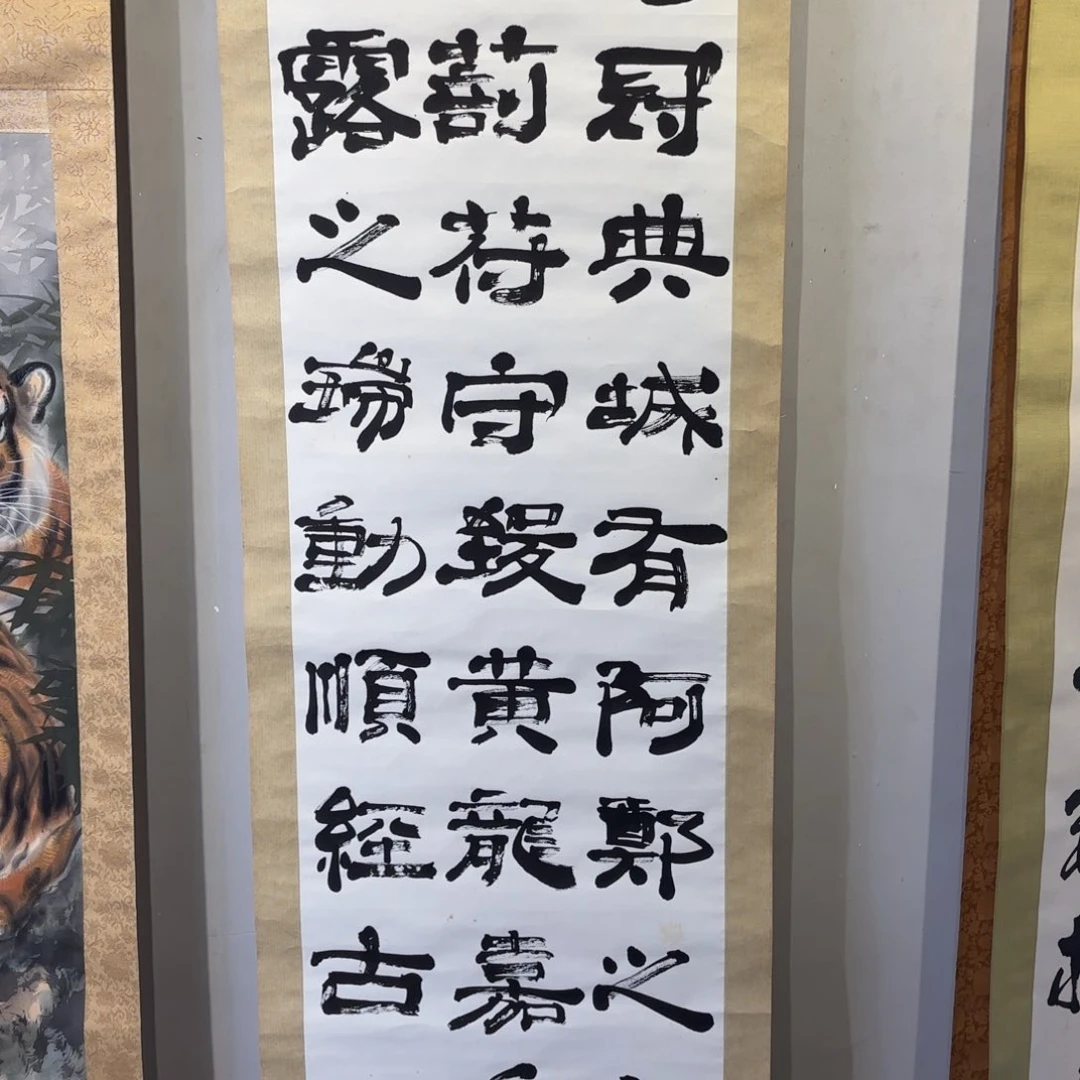 冠典城有阿鄭之
剖符守致黄龍嘉
露之瑞動順經古